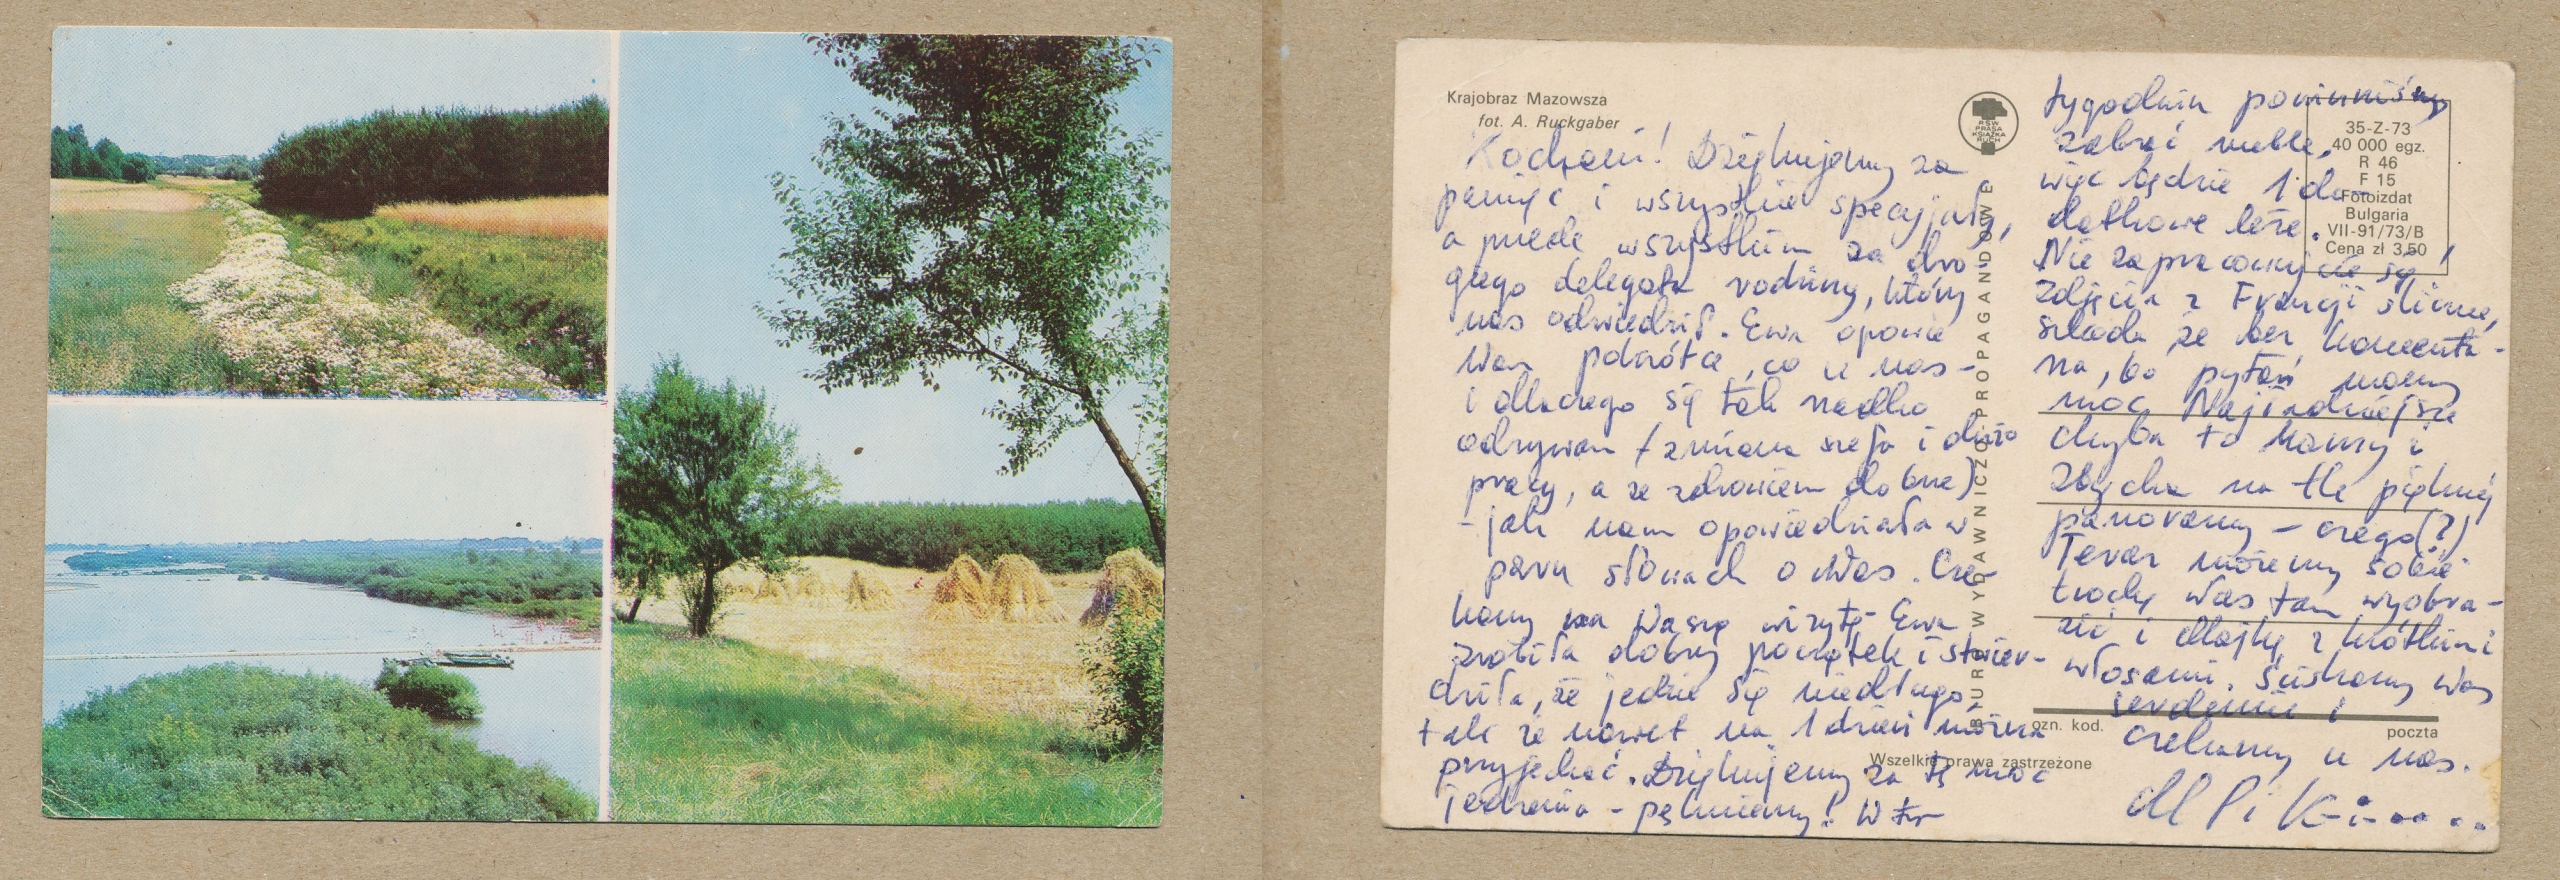 Krajobraz Mazowsza
fot. A. Ruckgaber
Kochani! Dziękujemy za
pamięć i wszystkie specyjały,
a przede wszystkim za dro-
giego delegata rodziny, który
nas odwiedził. Ewa opowie
Wam pokrótce, co u nas -
i dlaczego się tak rzadko
odzywam (zmiana szefa i dużo
pracy, a ze zdrowiem dobrze)
- jak nam opowiedziała w
paru słowach o Was. Cze-
kamy na Waszą wizytę - Ewa
zrobiła dobry początek i stwier-
dziła, że jedzie się niedługo,
tak że nawet na 1 dzień można
przyjechać. Dziękujemy za tę moc
jedzenia - pękniemy! W tym
BIURO WYDAWNICZO PROPAGANDOWE
RSW
PRASA
KSIĄŻKA
RUCH
tygodniu powinniśmy
zabrać meble,
więc będzie 1 do-
datkowe leże.
Nie zapracowujcie się!
Zdjęcia z Francji śliczne,
szkoda że bez komenta-
rza, bo pytań mamy
moc. Najładniejsze
chyba to Hanny i
Zbycha na tle pięknej
panoramy - czego(?)
Teraz możemy sobie
trochę Was tam wyobra-
zić i Majkę z krótkimi
włosami. Ściskamy Was
serdecznie i
czekamy u nas.
35-Z-73
40 000 egz.
R 46
F 15
Fotoizdat
Bulgaria
VII-91/73/B
Cena zł 3,50
ozn. kod.
poczta
Wszelkie prawa zastrzeżone